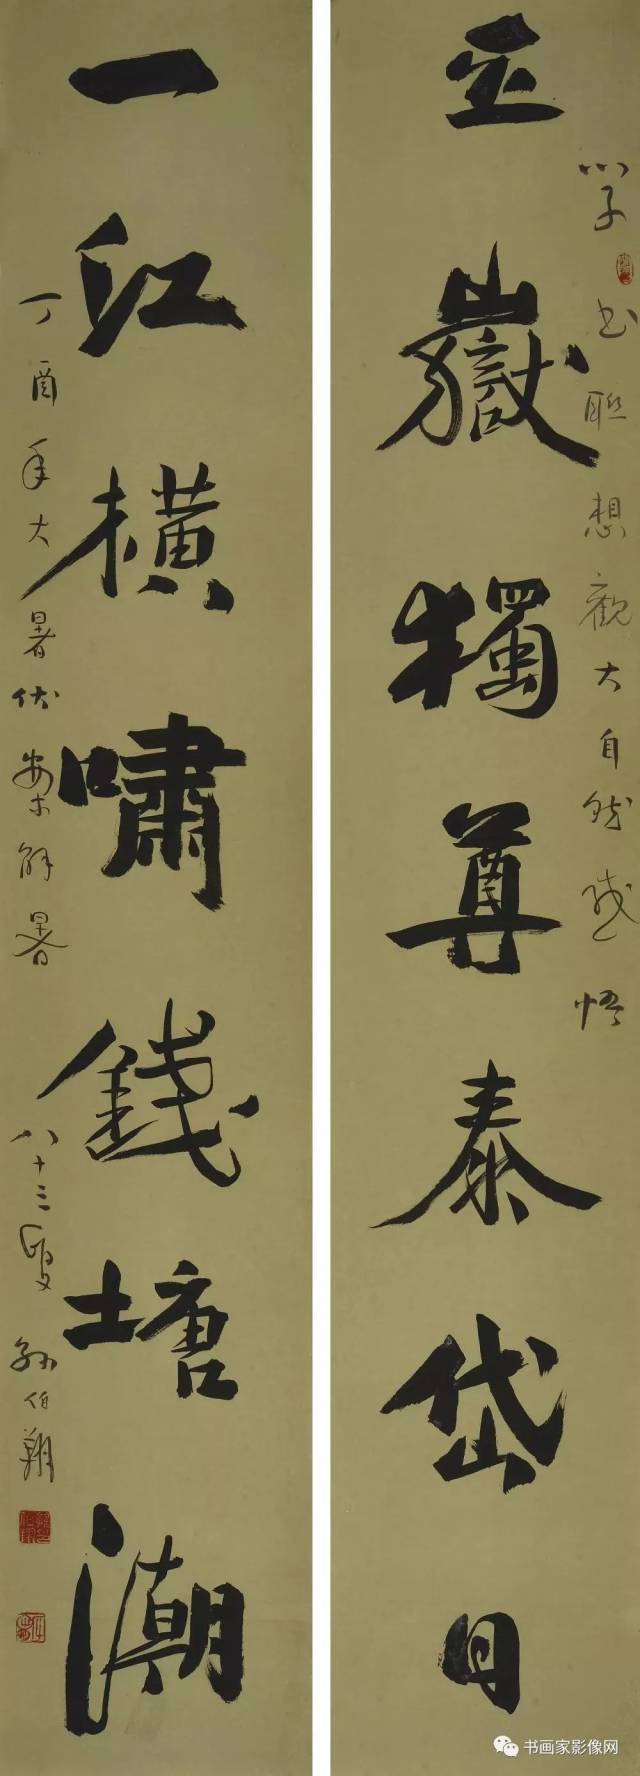 五嶽獨尊泰岱日
學書联想觀大自然感悟
一江横嘯錢塘潮
丁酉年大暑伏案解暑
八十三叟孫伯翔
书画家影像网